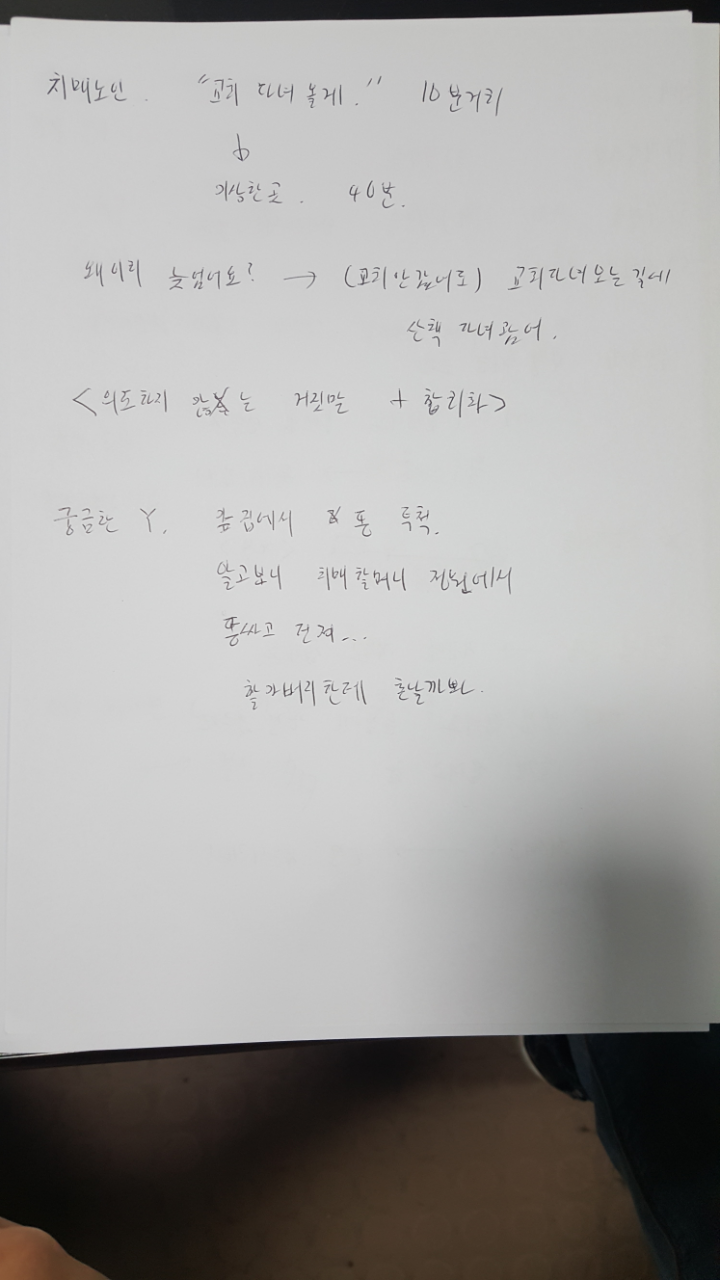 치매노인. "교회 다녀 올게." 10분거리
↓
이상한곳. 40분.
왜이리 늦었어요? → (교회안갔어도) 교회다녀오는길에
산책 다녀왔어.
<의도하지 않는 거짓말 + 합리화>
궁금한 Y. 옆집에서 똥 투척.
알고보니 치매할머니 정원에서
똥싸고 던져...
할아버리한테 혼날까봐.